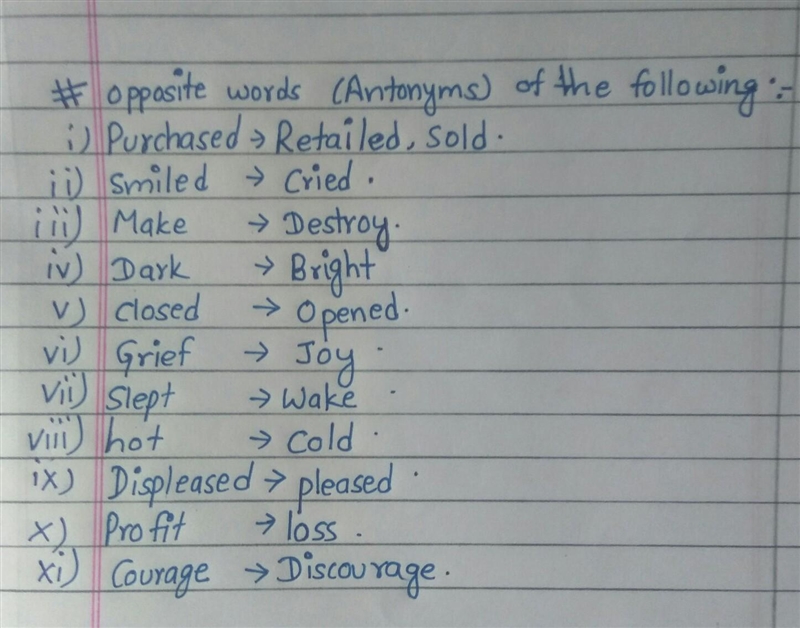 # opposite words (Antonyms) of the following :-
i) Purchased → Retailed, Sold.
ii) Smiled → Cried.
iii) Make → Destroy.
iv) Dark → Bright
v) closed → Opened.
vi) Grief → Joy.
vii) Slept → Wake.
viii) hot → Cold.
ix) Displeased → pleased.
x) Profit → loss.
xi) Courage → Discourage.